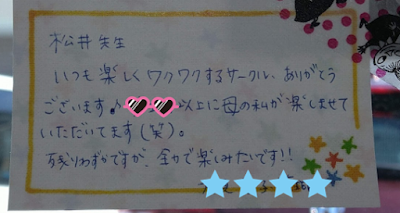 松井先生
いつも楽しくワクワクするサークル、ありがとう
ございます♪ 以上に母の私が楽しませて
いただいてます(笑)。
残りわずかですが、全力で楽しみたいです!!